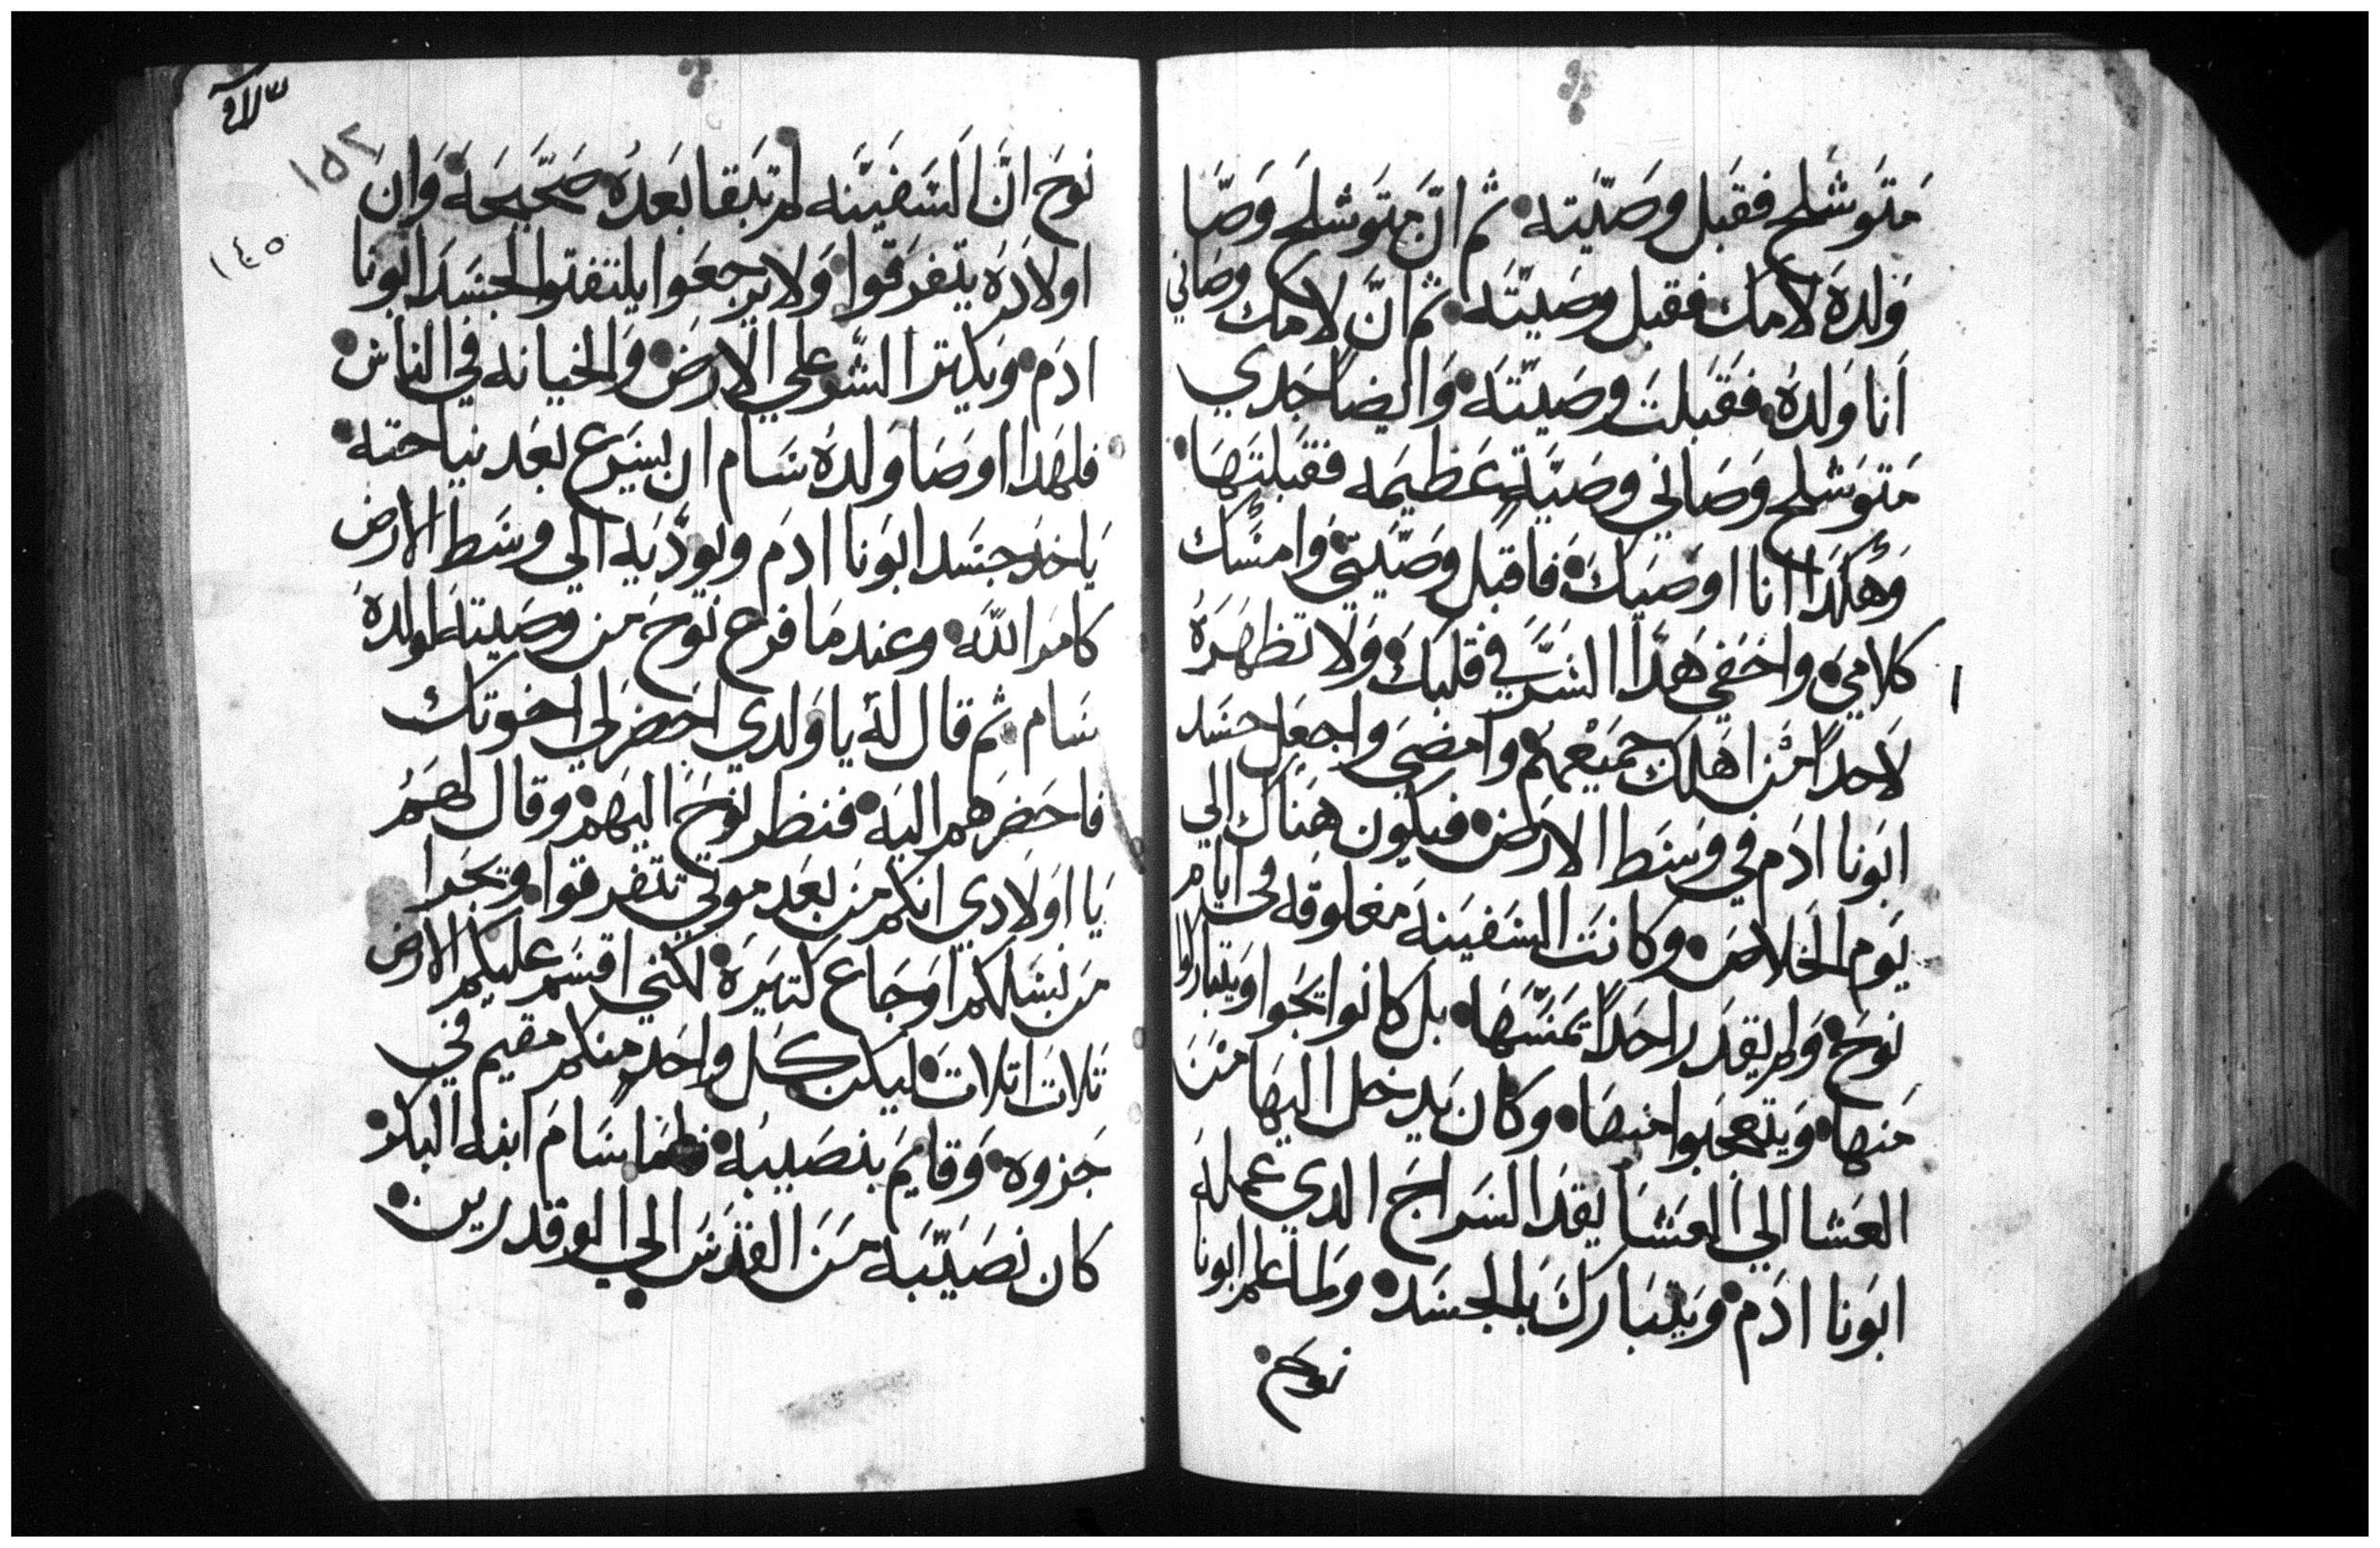 متوشلح فقبل وصيته ثم ان متوشلح وصا
ولده لامك فقبل وصيته ثم ان لامك وصاني
انا ولده فقبلت وصيته وايضا جدي
متوشلح وصاني وصية عظيمه فقبلتها
وهكذا انا اوصيك فاقبل وصيتي وامسك
كلامي واخفي هدا السر في قلبك ولا تظهره
لاحدا من اهلك جميعهم وامضي واجعل جسد
ابونا ادم في وسط الارض فيكون هناك الي
يوم الخلاص وكانت السفينه مغلوقه في ايام
نوح ولم يقدر احدا يمسها بل كانوا يجوا ويتباركوا
منها ويتعجبوا منها وكان يدخل اليها من
العشا الي العشا يقد السراج الدي عمله
ابونا ادم ويتبارك بالجسد ولما علم ابونا
نوح
١٥٢
١٤٥
نوح ان السفينه لم تبقا بعده صحيحة وان
اولاده يتفرقوا ولا يرجعوا يلتفتوا لجسد ابونا
ادم ويكترا الشر علي الارض والخيانه في الناس
فلهدا اوصا ولده سام ان يسرع بعد نياحته
ياخد جسد ابونا ادم ويوديه الي وسط الارض
كامر الله وعندما فرح نوح من وصيته لولده
سام ثم قال له يا ولدي احضر لي اخوتك
فاحضرهم اليه فنظر نوح اليهم وقال لهم
يا اولادي انكم من بعد موتي تتفرقوا ويجرا
من نسلكم اوجاع كتيرة لكني اقسم عليكم الارض
تلات اتلات ليكن كل واحد منكم مقيم في
جزوه وقايم بنصيبه فلما سام ابنه البكر
كان نصيبه من القدس الي